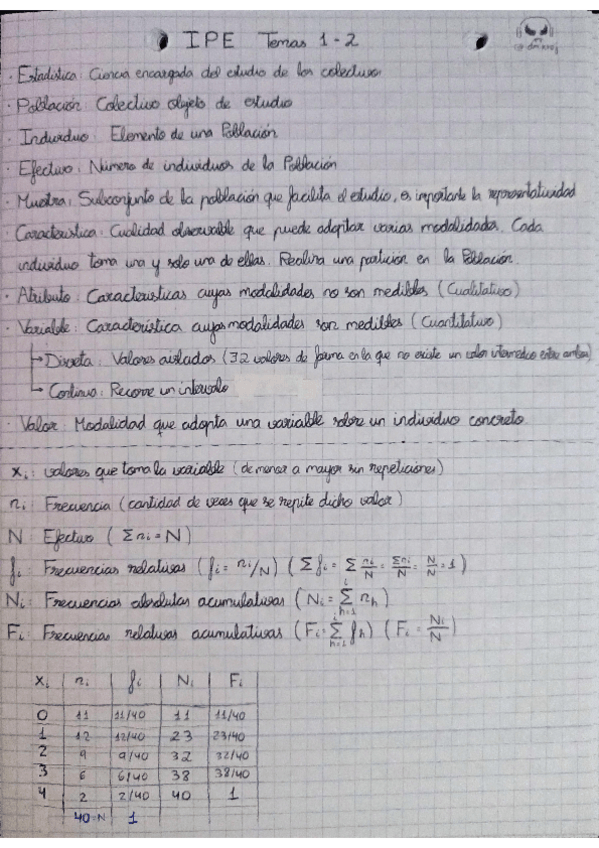 IPE Temas 1-2
· Estadística: Ciencia encargada del estudio de los colectivos
· Población: Colectivo objeto de estudio
· Individuo: Elemento de una Población
· Efectivo: Número de individuos de la Población
· Muestra: Subconjunto de la población que facilita el estudio, es importante la representatividad
· Característica: Cualidad observable que puede adoptar varias modalidades. Cada
individuo toma una y solo una de ellas. Realiza una partición en la Población.
· Atributo: Características cuyas modalidades no son medibles (Cualitativo)
· Variable: Característica cuyas modalidades son medibles (Cuantitativo)
→ Discreta: Valores aislados (32 valores de forma en la que no existe un valor intermedio entre ambos)
→ Continua: Recorre un intervalo
· Valor: Modalidad que adopta una variable sobre un individuo concreto.
xᵢ: valores que toma la variable (de menor a mayor sin repeticiones)
nᵢ: Frecuencia (cantidad de veces que se repite dicho valor)
N: Efectivo (Σnᵢ = N)
fᵢ: Frecuencias relativas (fᵢ = nᵢ/N) (Σfᵢ = Σ nᵢ/N = Σnᵢ/N = N/N = 1)
Nᵢ: Frecuencias absolutas acumulativas (Nᵢ = Σ(h=1, i) nₕ)
Fᵢ: Frecuencias relativas acumulativas (Fᵢ = Σ(h=1, i) fₕ) (Fᵢ = Nᵢ/N)
Xᵢ nᵢ fᵢ Nᵢ Fᵢ
0 11 11/40 11 11/40
1 12 12/40 23 23/40
2 9 9/40 32 32/40
3 6 6/40 38 38/40
4 2 2/40 40 1
40=N 1